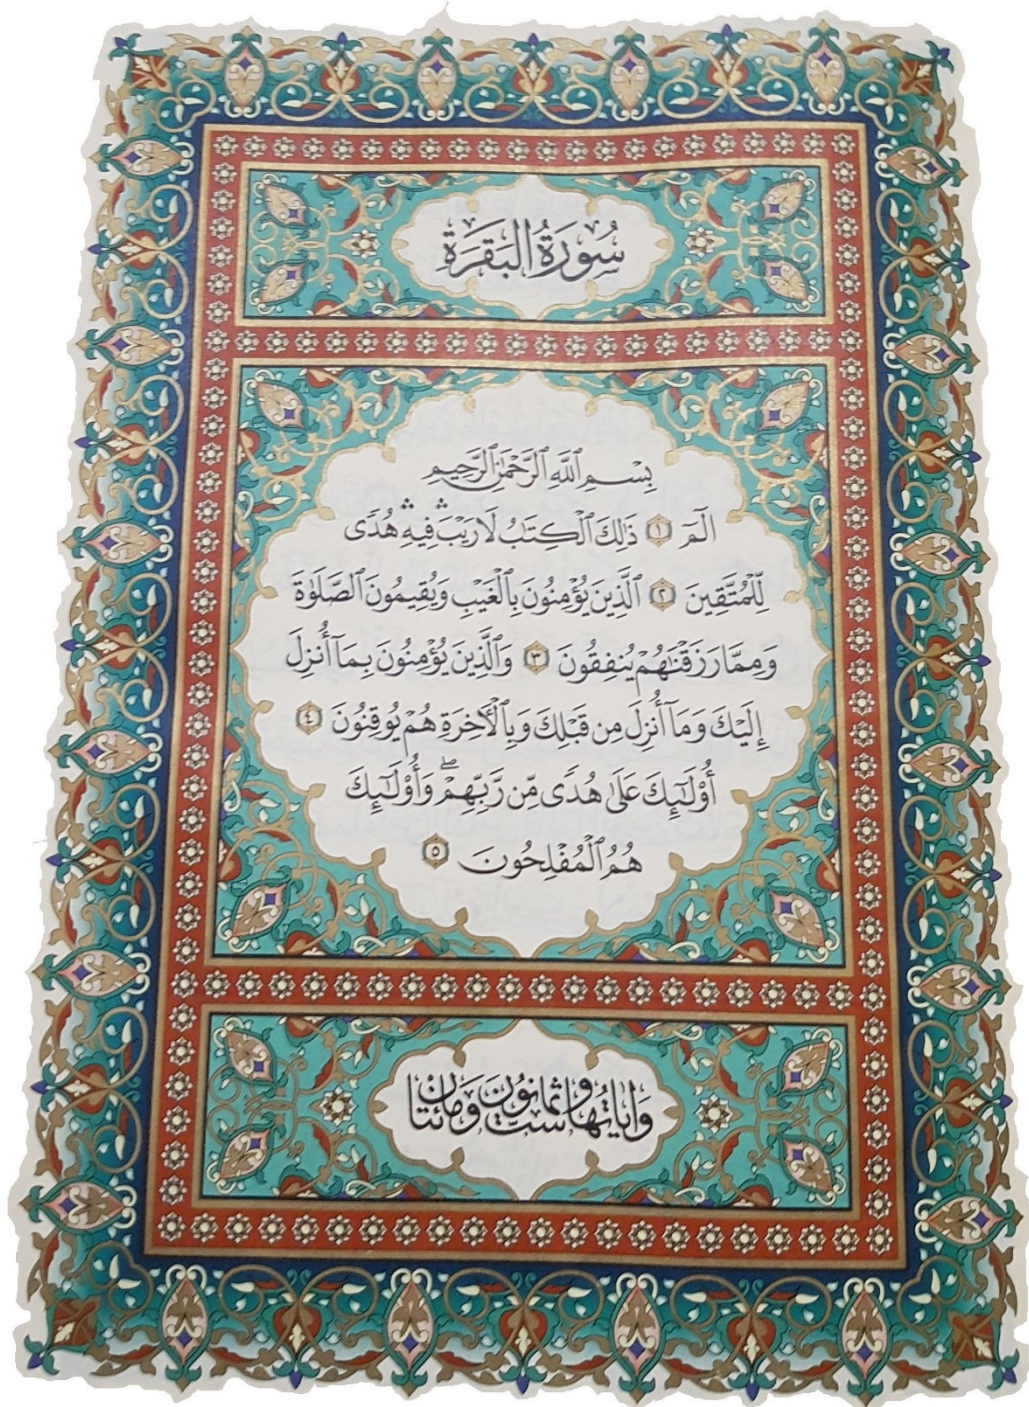 سُورَةُ البَقَرَةِ
بِسْمِ ٱللَّهِ ٱلرَّحْمَٰنِ ٱلرَّحِيمِ
الٓمٓ ١ ذَٰلِكَ ٱلْكِتَٰبُ لَا رَيْبَ ۛ فِيهِ ۛ هُدًى
لِّلْمُتَّقِينَ ٢ ٱلَّذِينَ يُؤْمِنُونَ بِٱلْغَيْبِ وَيُقِيمُونَ ٱلصَّلَوٰةَ
وَمِمَّا رَزَقْنَٰهُمْ يُنفِقُونَ ٣ وَٱلَّذِينَ يُؤْمِنُونَ بِمَآ أُنزِلَ
إِلَيْكَ وَمَآ أُنزِلَ مِن قَبْلِكَ وَبِٱلْءَاخِرَةِ هُمْ يُوقِنُونَ ٤
أُو۟لَٰٓئِكَ عَلَىٰ هُدًى مِّن رَّبِّهِمْ ۖ وَأُو۟لَٰٓئِكَ
هُمُ ٱلْمُفْلِحُونَ ٥
وَاٰيَاتُهَا سِتٌّ وَثَمَانُونَ وَمِائَتَانِ